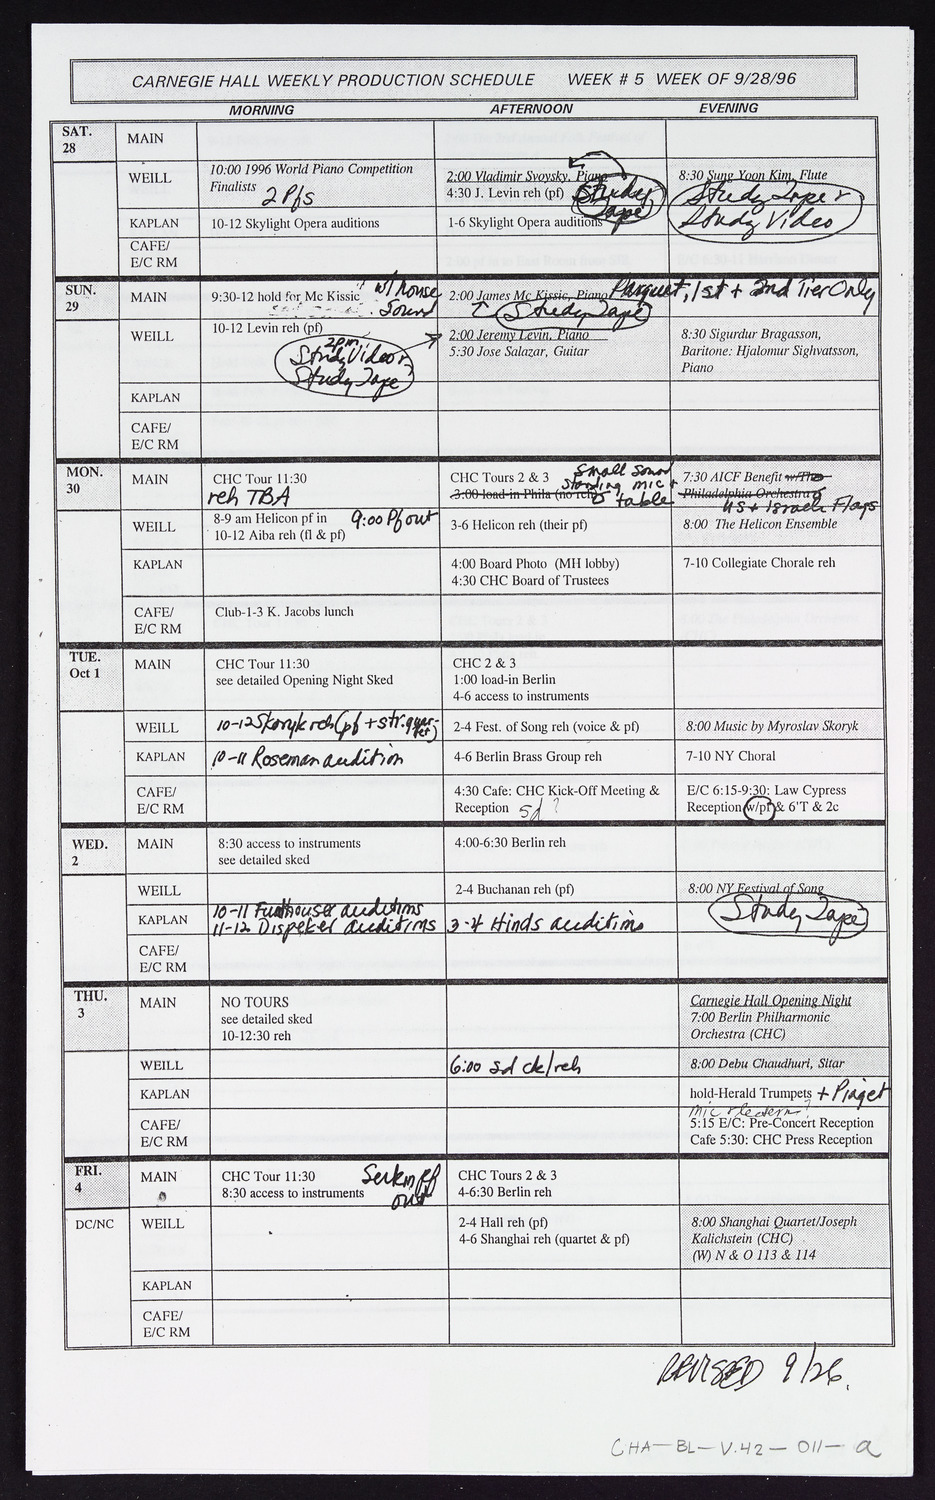 CARNEGIE HALL WEEKLY PRODUCTION SCHEDULE WEEK # 5 WEEK OF 9/28/96
MORNING AFTERNOON EVENING
SAT.
28
MAIN
WEILL
10:00 1996 World Piano Competition
Finalists
2 Pfs
2:00 Vladimir Svoysky, Piano
4:30 J. Levin reh (pf)
Study
Tape
8:30 Sung Yoon Kim, Flute
Study Tape +
Study Video
KAPLAN
10-12 Skylight Opera auditions
1-6 Skylight Opera auditions
CAFE/
E/C RM
SUN.
29
MAIN
9:30-12 hold for Mc Kissic
w/ House
Sound
2:00 James Mc Kissic, Piano
Parquet, 1st + 2nd Tier Only
Study Tape
WEILL
10-12 Levin reh (pf)
2pm
Study Video +
Study Tape
2:00 Jeremy Levin, Piano
5:30 Jose Salazar, Guitar
8:30 Sigurdur Bragasson,
Baritone: Hjalomur Sighvatsson,
Piano
KAPLAN
CAFE/
E/C RM
MON.
30
MAIN
CHC Tour 11:30
reh TBA
CHC Tours 2 & 3
3:00 load-in Phila (no reh)
Small sound
standing mic +
table
7:30 AICF Benefit w/The
Philadelphia Orchestra
US + Israeli Flags
WEILL
8-9 am Helicon pf in
10-12 Aiba reh (fl & pf)
9:00 Pf out
3-6 Helicon reh (their pf)
8:00 The Helicon Ensemble
KAPLAN
4:00 Board Photo (MH lobby)
4:30 CHC Board of Trustees
7-10 Collegiate Chorale reh
CAFE/
E/C RM
Club-1-3 K. Jacobs lunch
TUE.
Oct 1
MAIN
CHC Tour 11:30
see detailed Opening Night Sked
CHC 2 & 3
1:00 load-in Berlin
4-6 access to instruments
WEILL
10-12 Skoryk reh (pf + str. quar-
tet)
2-4 Fest. of Song reh (voice & pf)
8:00 Music by Myroslav Skoryk
KAPLAN
10-11 Roseman audition
4-6 Berlin Brass Group reh
7-10 NY Choral
CAFE/
E/C RM
4:30 Cafe: CHC Kick-Off Meeting &
Reception sd ?
E/C 6:15-9:30: Law Cypress
Reception w/pf & 6'T & 2c
WED.
2
MAIN
8:30 access to instruments
see detailed sked
4:00-6:30 Berlin reh
WEILL
2-4 Buchanan reh (pf)
8:00 NY Festival of Song
Study Tape
KAPLAN
10-11 Funthouser auditions
11-12 Dispeker auditions
3-4 Hinds auditions
CAFE/
E/C RM
THU.
3
MAIN
NO TOURS
see detailed sked
10-12:30 reh
Carnegie Hall Opening Night
7:00 Berlin Philharmonic
Orchestra (CHC)
WEILL
6:00 sd ck/reh
8:00 Debu Chaudhuri, Sitar
KAPLAN
hold-Herald Trumpets + Piaget
CAFE/
E/C RM
mic + lectern?
5:15 E/C: Pre-Concert Reception
Cafe 5:30: CHC Press Reception
FRI.
4
MAIN
CHC Tour 11:30
8:30 access to instruments
Serkin pf
out
CHC Tours 2 & 3
4-6:30 Berlin reh
DC/NC
WEILL
2-4 Hall reh (pf)
4-6 Shanghai reh (quartet & pf)
8:00 Shanghai Quartet/Joseph
Kalichstein (CHC)
(W) N & O 113 & 114
KAPLAN
CAFE/
E/C RM
REVISED 9/26.
CHA-BL-V.42-011-a